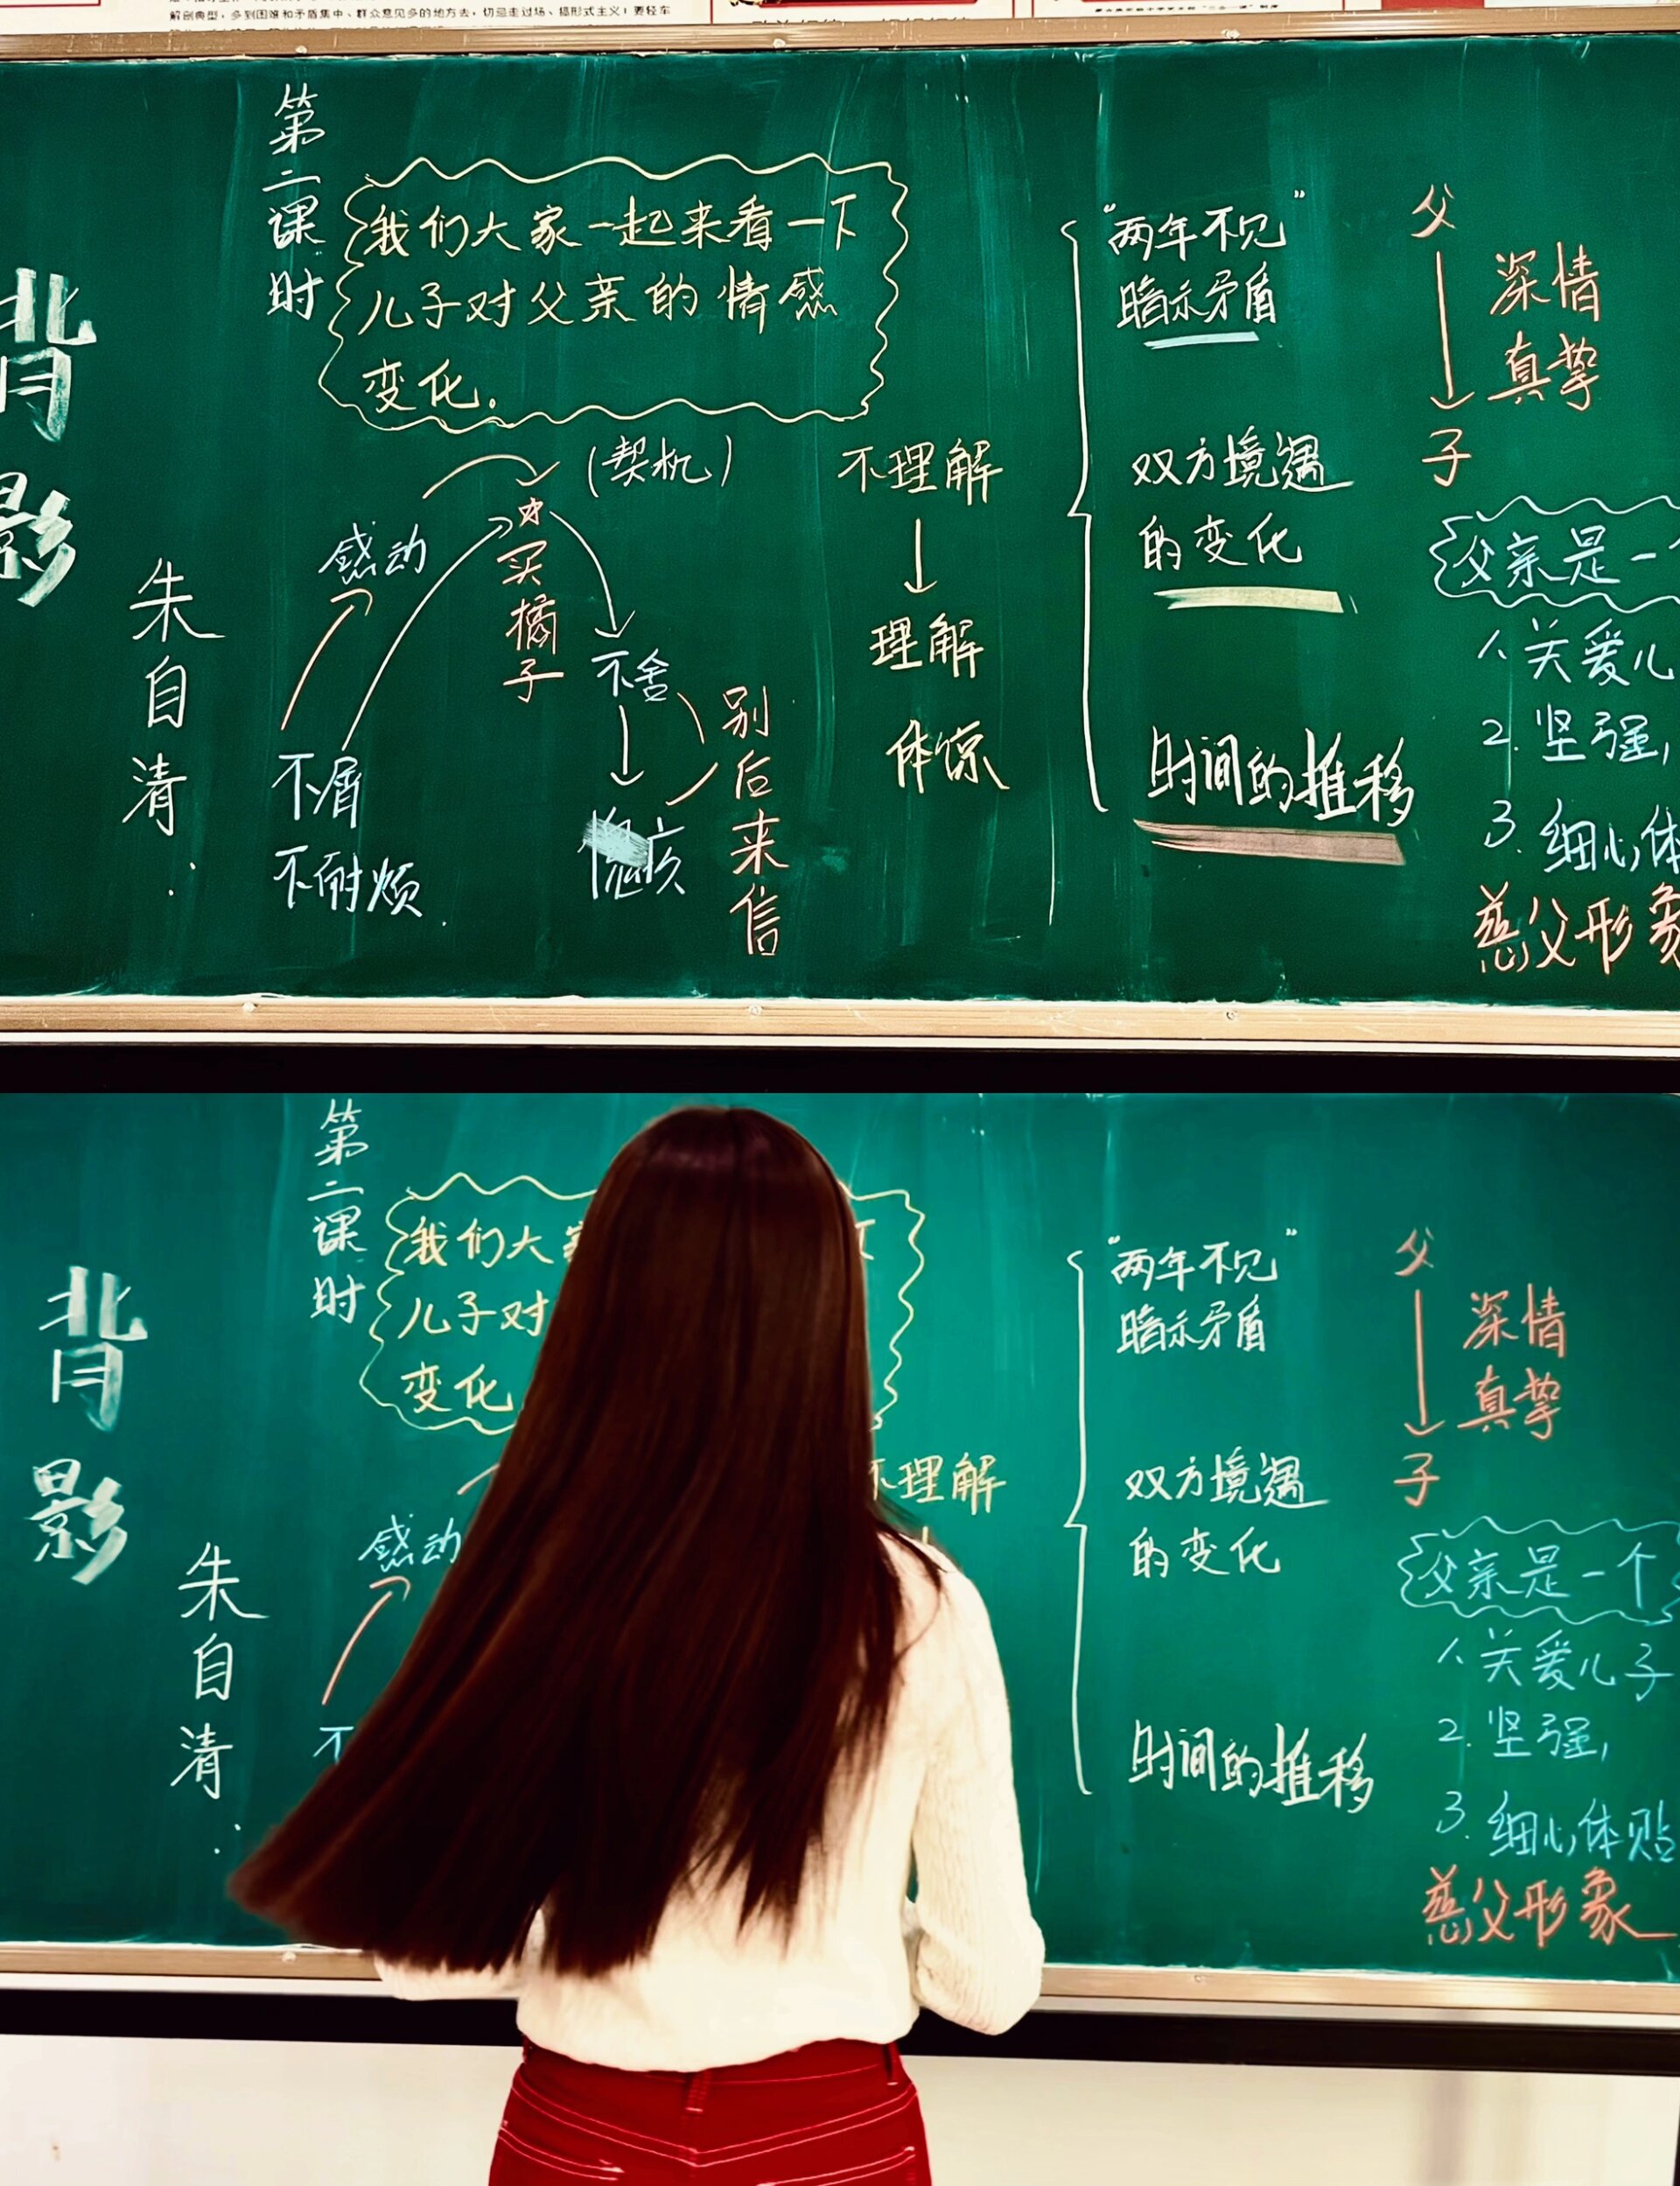 解剖典型，多到困难和矛盾集中、群众意见多的地方去，切忌走过场、搞形式主义；要轻车
第二课时
我们大家一起来看一下
儿子对父亲的情感
变化。
背影
朱自清
(契机)
感动
买橘子
不舍
不屑
不耐烦.
别后来信
不理解
理解
体谅
"两年不见"
暗示矛盾
双方境遇
的变化
时间的推移
父
子
深情
真挚
父亲是一
1.关爱儿
2.坚强,
3.细心体
慈父形象
第二课时
我们大
儿子对
变化
背影
朱自清
感动
不
理解
"两年不见"
暗示矛盾
双方境遇
的变化
时间的推移
父
子
深情
真挚
父亲是一个
1.关爱儿子
2.坚强,
3.细心体贴
慈父形象